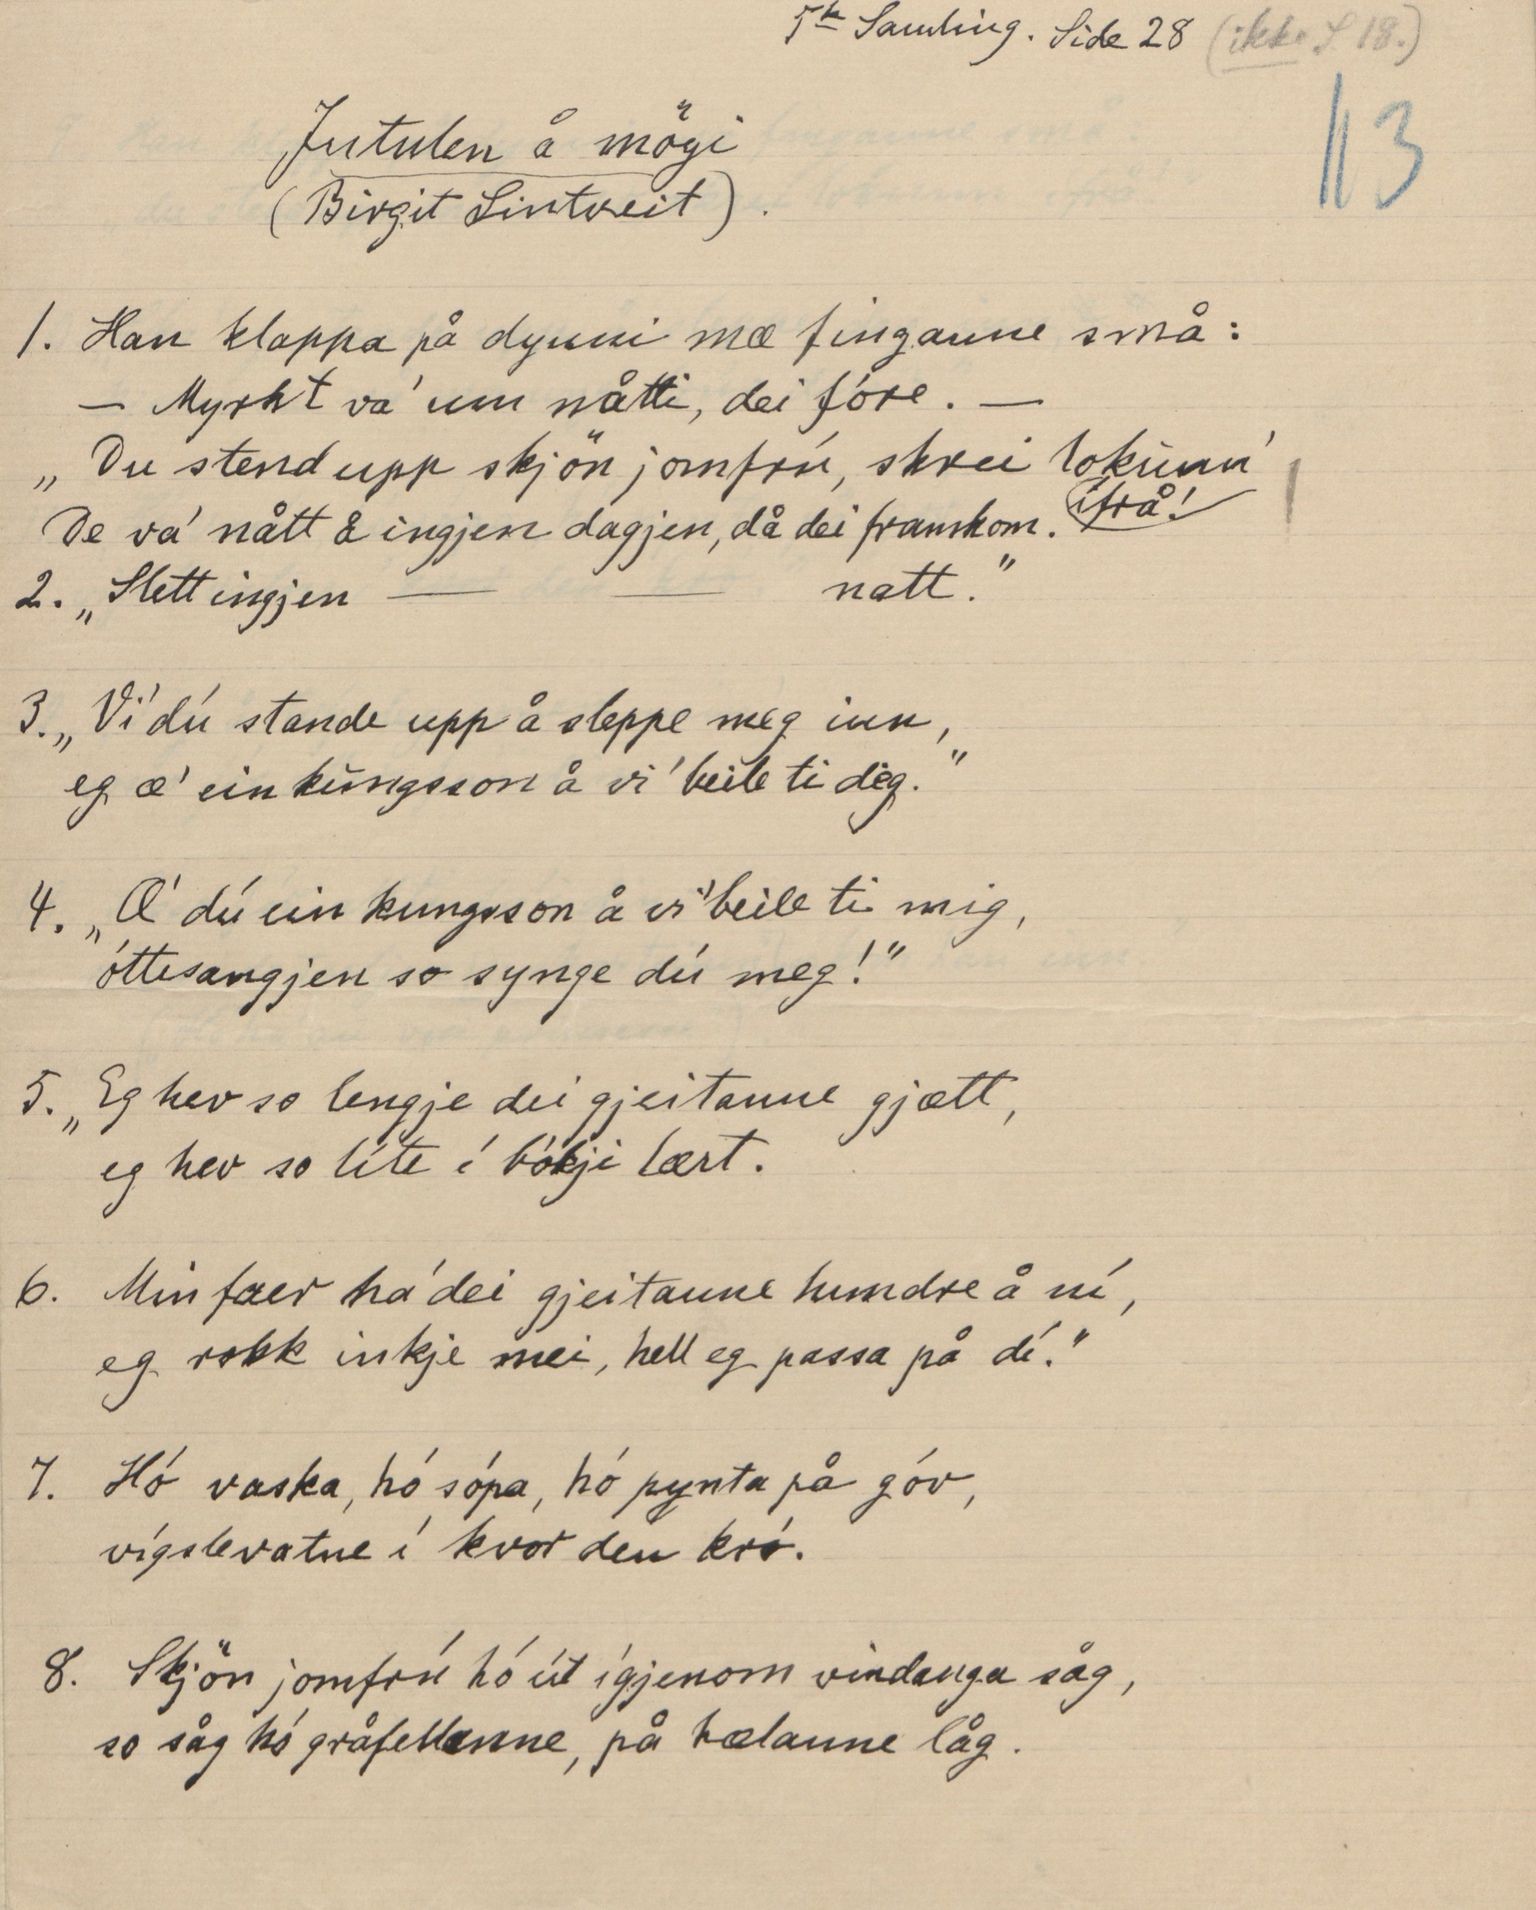 5te Samling. Side 28 (ikke S 18.)
113
Jutulen å mögi
(Birgit Lintveit).
1. Han klappa på dynni mæ finganne små:
— Myrkt va' um nåtti, dei fóre. —
„Du stend upp skjön jomfrú, skrei lokunn'
ifrå!
De va' nått å ingjen dagjen, då dei framkom.
2. „Slett ingjen — — natt."
3. „Vi' dú stande upp å sleppe meg inn,
eg æ' ein kungsson å vi' beile ti deg."
4. „Æ' dú ein kungsson å vi' beile ti mig,
óttesangjen so synge dú meg!"
5. „Eg hev so lengje dei gjeitanne gjætt,
eg hev so líte í bókji lært.
6. Min faer ha' dei gjeitanne hundre å ní,
eg rokk inkje mei, hell eg passa på dí."
7. Hó vaska, hó sópa, hó pynta på góv,
vígslevatne í kvor den kró.
8. Skjön jomfrú hó út ígjenom vindauga såg,
so såg hó gråfellanne, på hælanne låg.